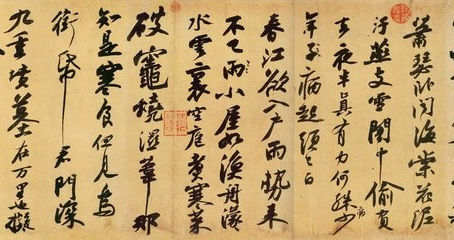 蕭瑟臥聞海棠花泥
汙燕支雪闇中偷負
去夜半真有力何殊病少
年子病起頭已白
春江欲入戶雨勢來
不已雨小屋如漁舟濛濛
水雲裏空庖煮寒菜
破竈燒濕葦那
知是寒食但見烏
銜帋君門深
九重墳墓在万里也擬